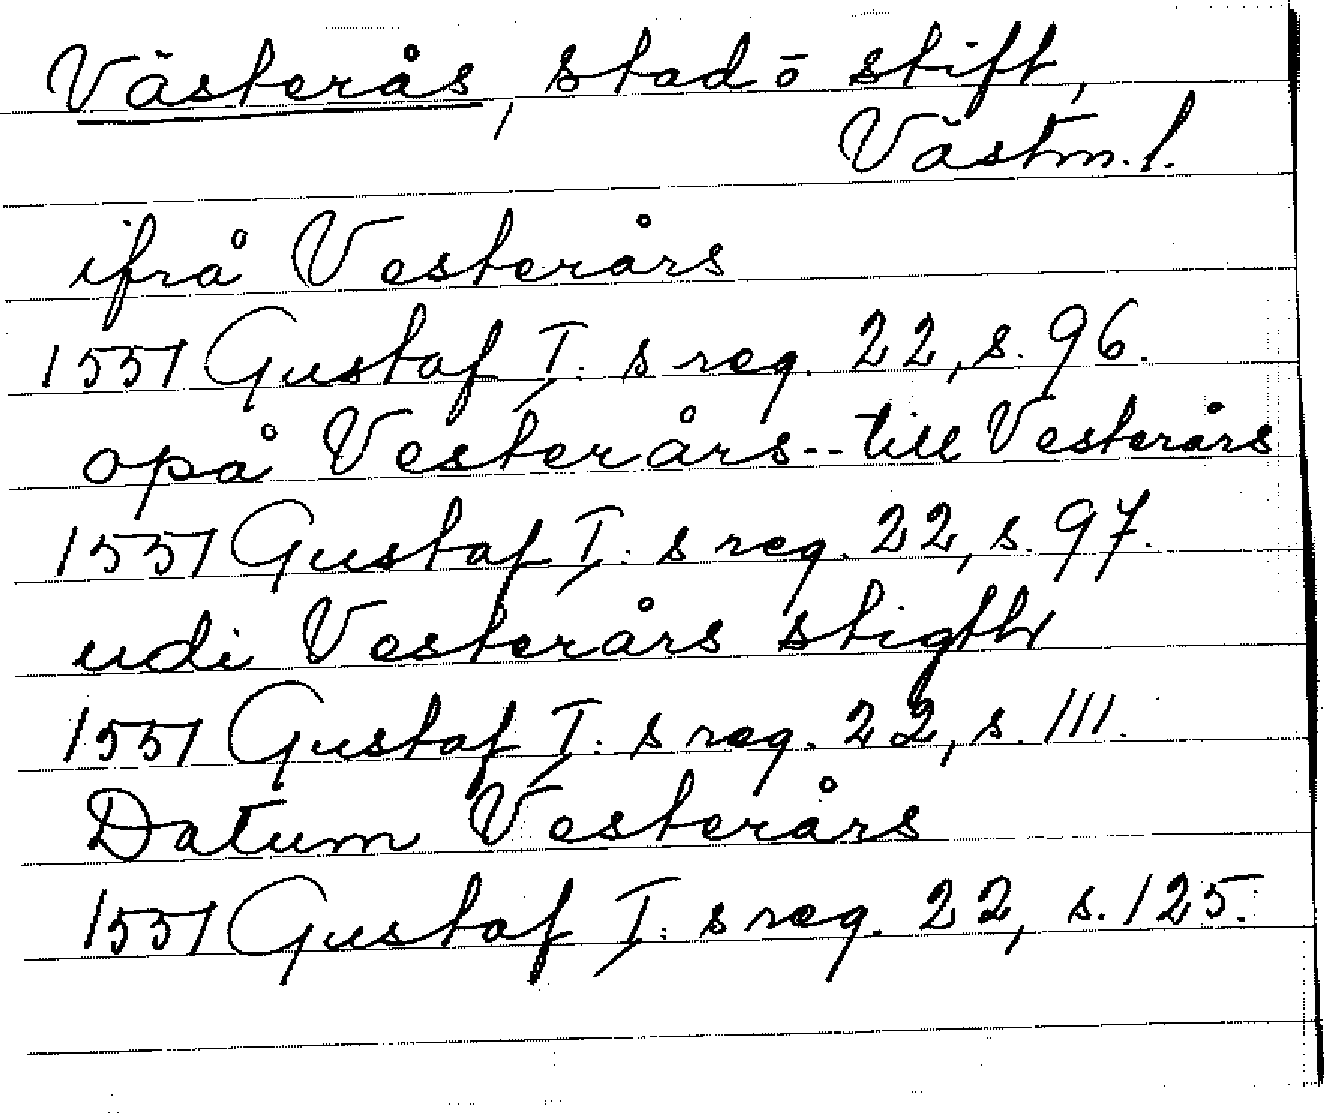 Västerås, stad o stift,
Västm. l.
ifrå Vesterårs
1551 Gustaf I:s reg. 22, s. 96.
opå Vesterårs -- till Vesterårs
1551 Gustaf I:s reg. 22, s. 97.
udi Vesterårs stigth
1551 Gustaf I:s reg. 22, s. 111.
Datum Vesterårs
1551 Gustaf I:s reg. 22, s. 125.